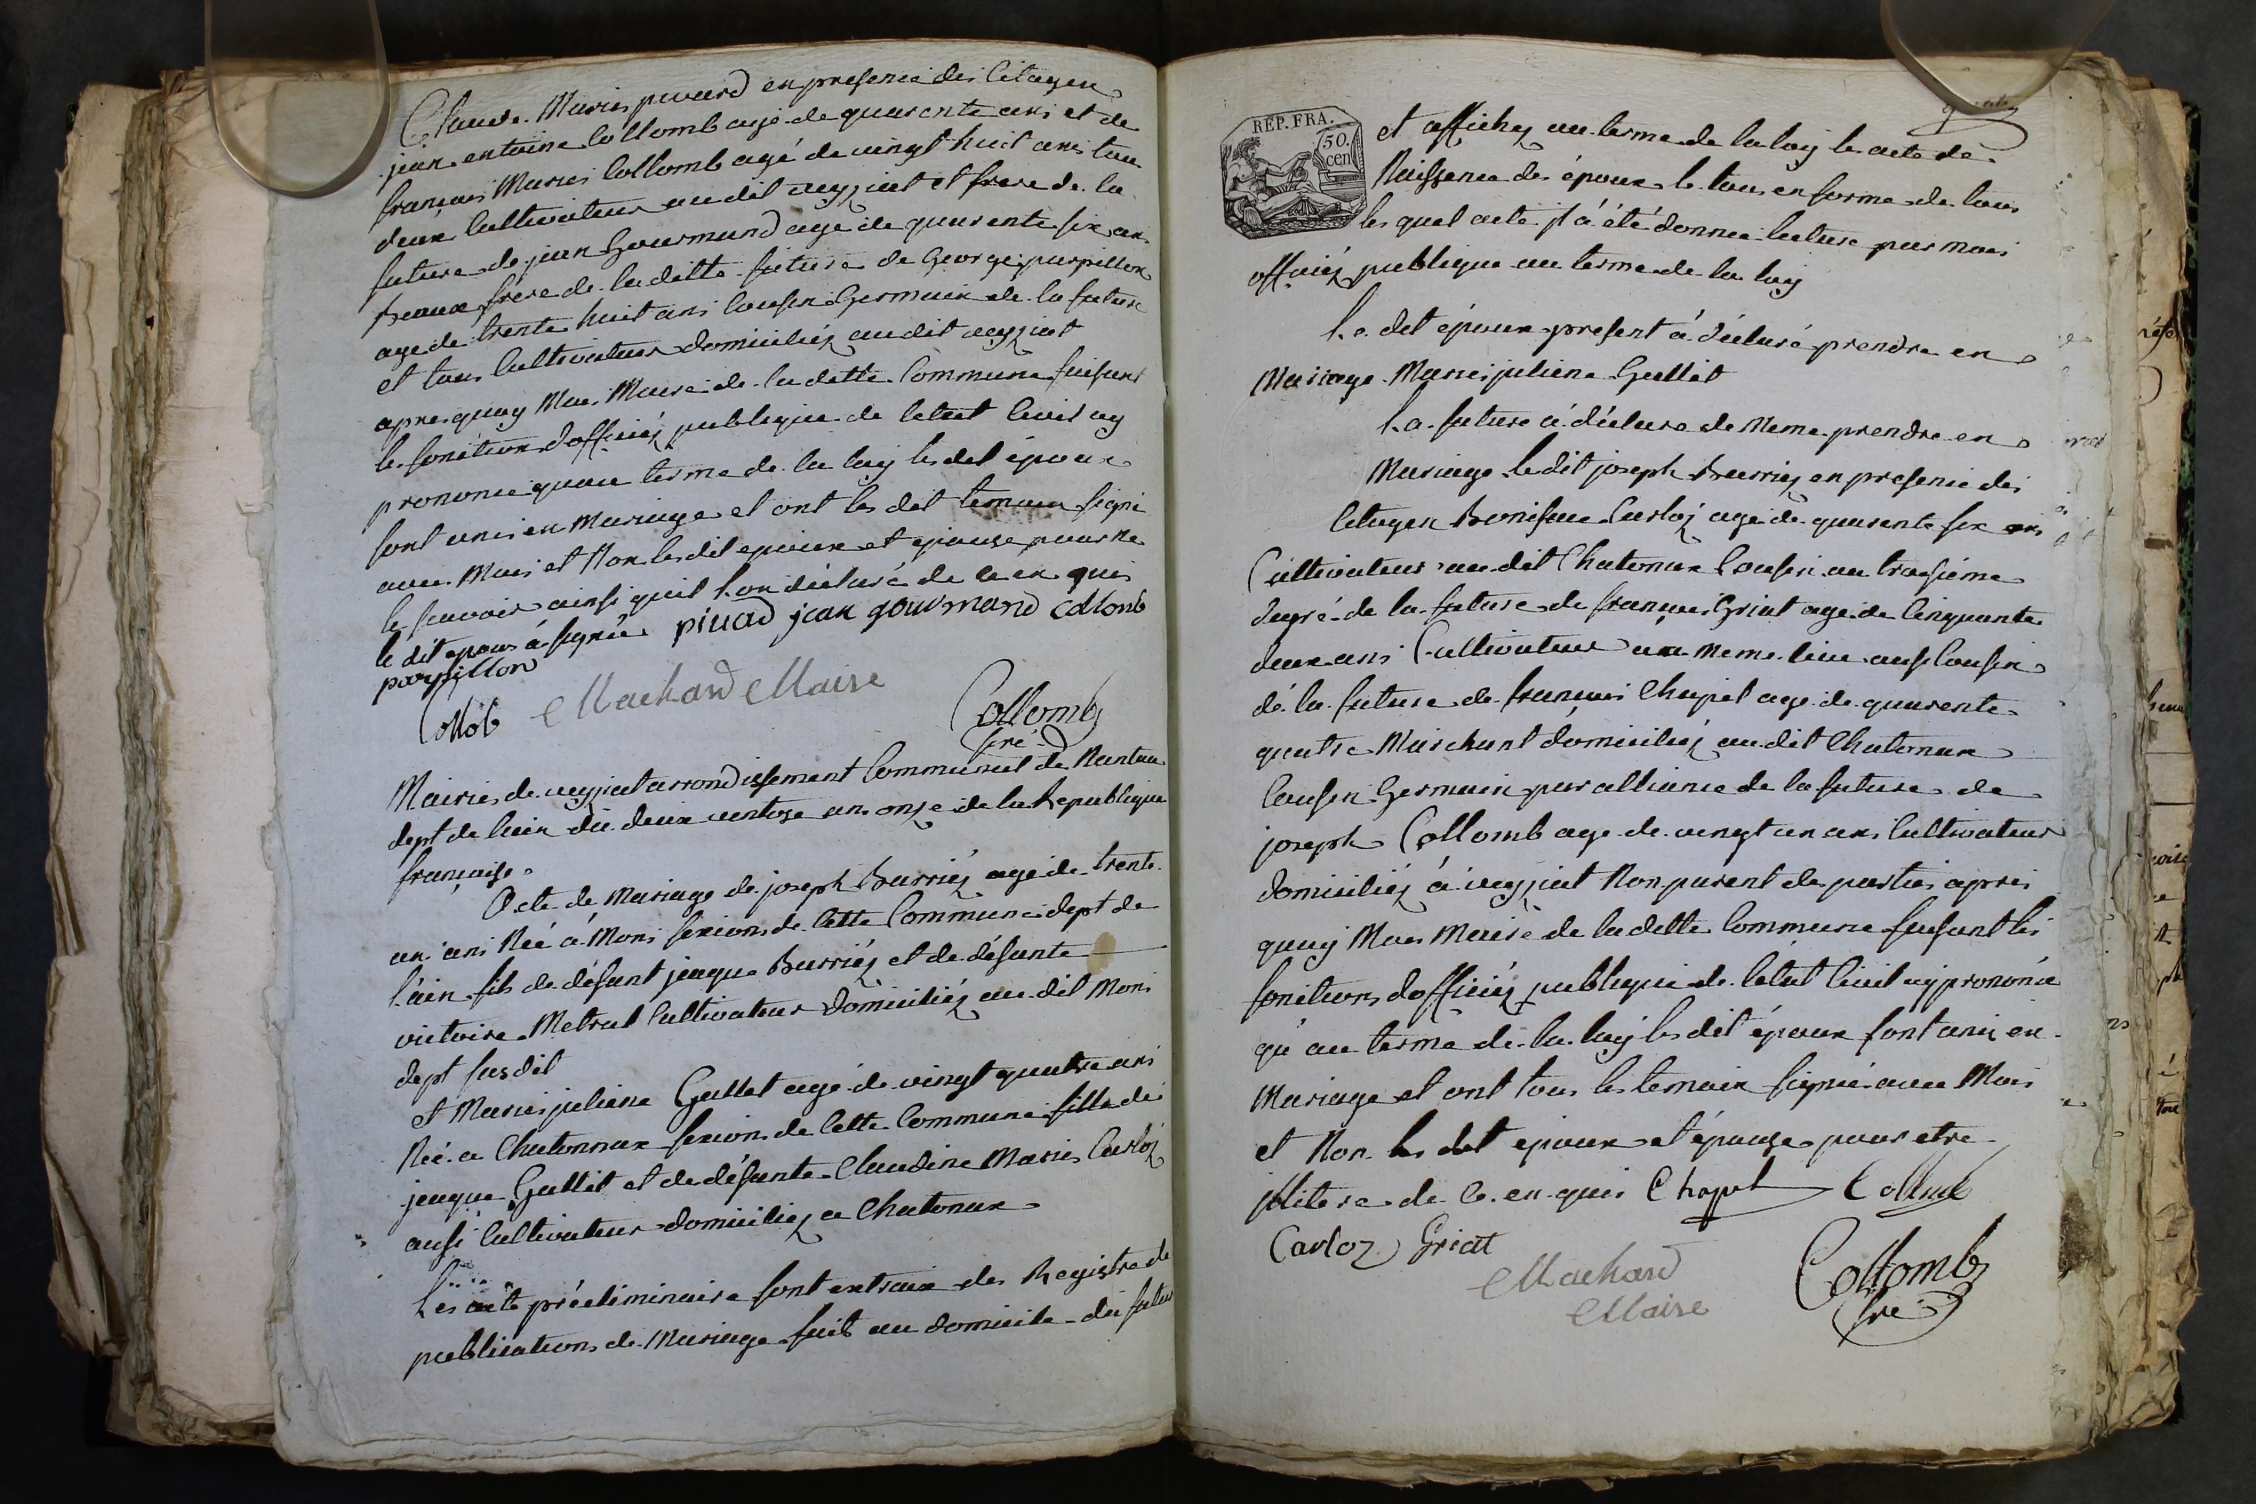 Claude Marie pivard en presence des Citoyen
jean entoine Collomb agé de quarente ans et de
françois Marie Collomb agé de vingt huit ans tou
deux Cultivateur audit veyziat et frere de la
future de jean Gourmand age de quarente six an
beaux frere de la ditte future de George parpillon
age de trente huit ans Cousin Germain de la future
et tous Cultivateur domiciliéz audit veyziat
apres quoy Moi Maire de la ditte Commune faisant
les fonction d'officiéz publique de letat Civil ay
prononcé quau terme de la loy les dit époux
sont unis en Mariage et ont les dit temoin signé
avec Moi et Non les dit epoux et epouse pour ne
le savoir ainsi quil l'on déclaré de ce en quis
le dit epoux à signée pivad jean gourmand Collonb
parpillon
Collob Machard Maire Collomb
sre
Mairie de veyziat arrondissement Communal de Nantua
dept de lain du deux ventose an onze de la Republique
française
Acte de Mariage de joseph Burriéz agé de trente
un ans Née à Mons sexions de Cette Commune dept de
l'ain fils de défunt jaque Burriéz et de défunte
victoire Metral Cultivateur domiciliéz au dit Mons
dept susdit
et Marie juliene Gallet agé de vingt quatre ans
Née a Chatonnax sexions de Cette Commune fille de
jaque Gallet et de défunte Claudine Marie Carloz
ausi Cultivateur domiciliez a Chatonax
Les acte préeliminaire sont extraix des Registre de
publications de Mariage fait au domicile du futur
REP. FRA.
50.
cen
et affichez au terme de la loy les acte de
Naissance des époux le tous en forme de tous
les quel acte jl à été donnée lecture par moi
officiéz publique au terme de la loy
Le dit époux present à déclaré prendre en
Mariage Marie juliene Gallet
La future à déclare de Meme prendre en
Mariage le dit joseph Burriez en presence des
Citoyen Boniface Carloz agé de quarente six ans
Cultivateur au dit Chatonax Cousin au troisième
degré de la future de françois Griat age de Cinquante
deux ans Cultivateur au Meme lieu ausi Cousin
de la future de françois Chapel age de quarente
quatre Marchant domiciliéz audit Chatonax
Cousin Germain par alliance de la future de
joseph Collomb age de vingt un ans Cultivateur
domiciliéz à veyziat Non parent de parties apres
quoy Moi Maire de la ditte Commune faisant les
fonctions d'officiéz publique de létat Civil ay prononcé
qu'au terme de la loy les dit époux sont unis en
Mariage et ont tous les temoin signé avec Moi
et Non les dit epoux et épouse pour etre
jllitere de ce en quis Chapel Collomb
Carloz Griat
Machard
Maire
Collomb
sre